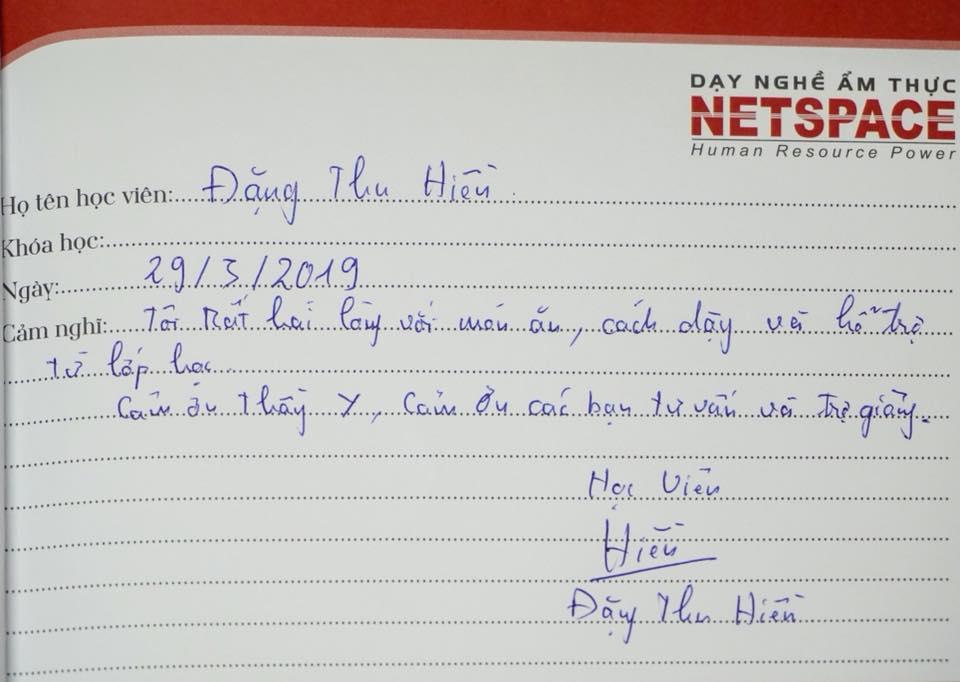 DẠY NGHỀ ẨM THỰC
NETSPACE
Human Resource Power
Họ tên học viên: Đặng Thu Hiền
Khóa học:
Ngày: 29/3/2019
Cảm nghĩ: Tôi Rất hài lòng với món ăn, cách dậy và hỗ trợ
từ lớp học
Cảm ơn thầy Y, Cảm ơn các bạn tư vấn và trợ giảng.
Học Viên
Hiền
Đặng Thu Hiền